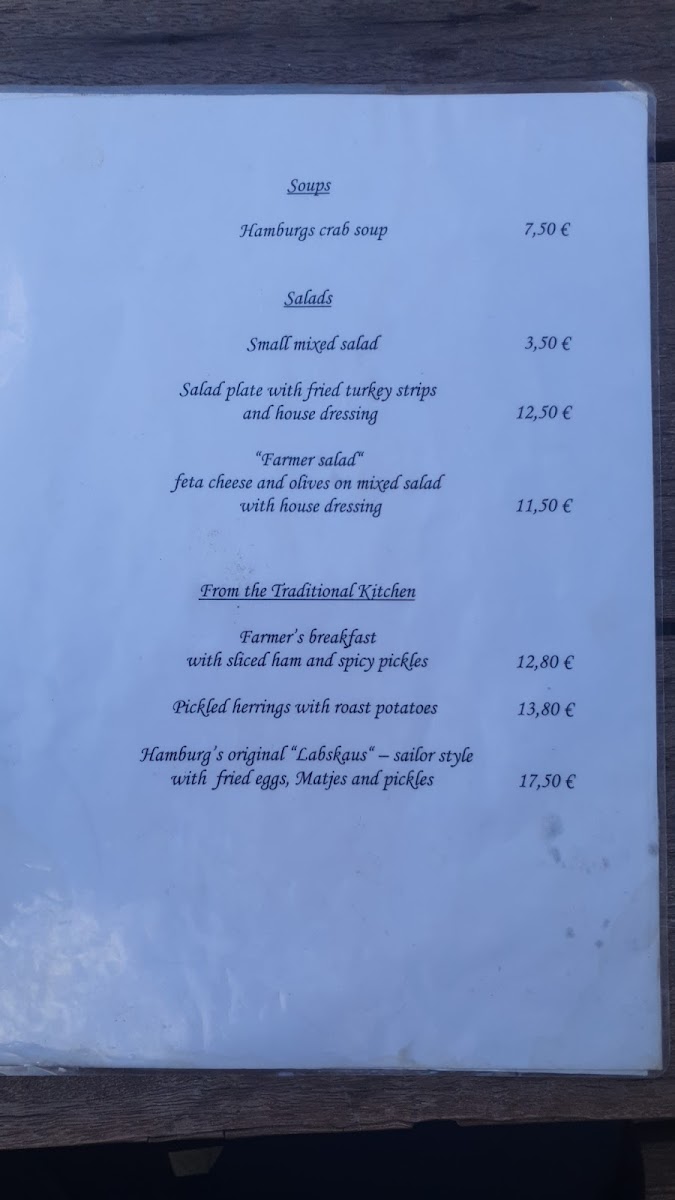 Soups
Hamburgs crab soup 7,50 €
Salads
Small mixed salad 3,50 €
Salad plate with fried turkey strips
and house dressing 12,50 €
“Farmer salad“
feta cheese and olives on mixed salad
with house dressing 11,50 €
From the Traditional Kitchen
Farmer’s breakfast
with sliced ham and spicy pickles 12,80 €
Pickled herrings with roast potatoes 13,80 €
Hamburg’s original “Labskaus“ – sailor style
with fried eggs, Matjes and pickles 17,50 €